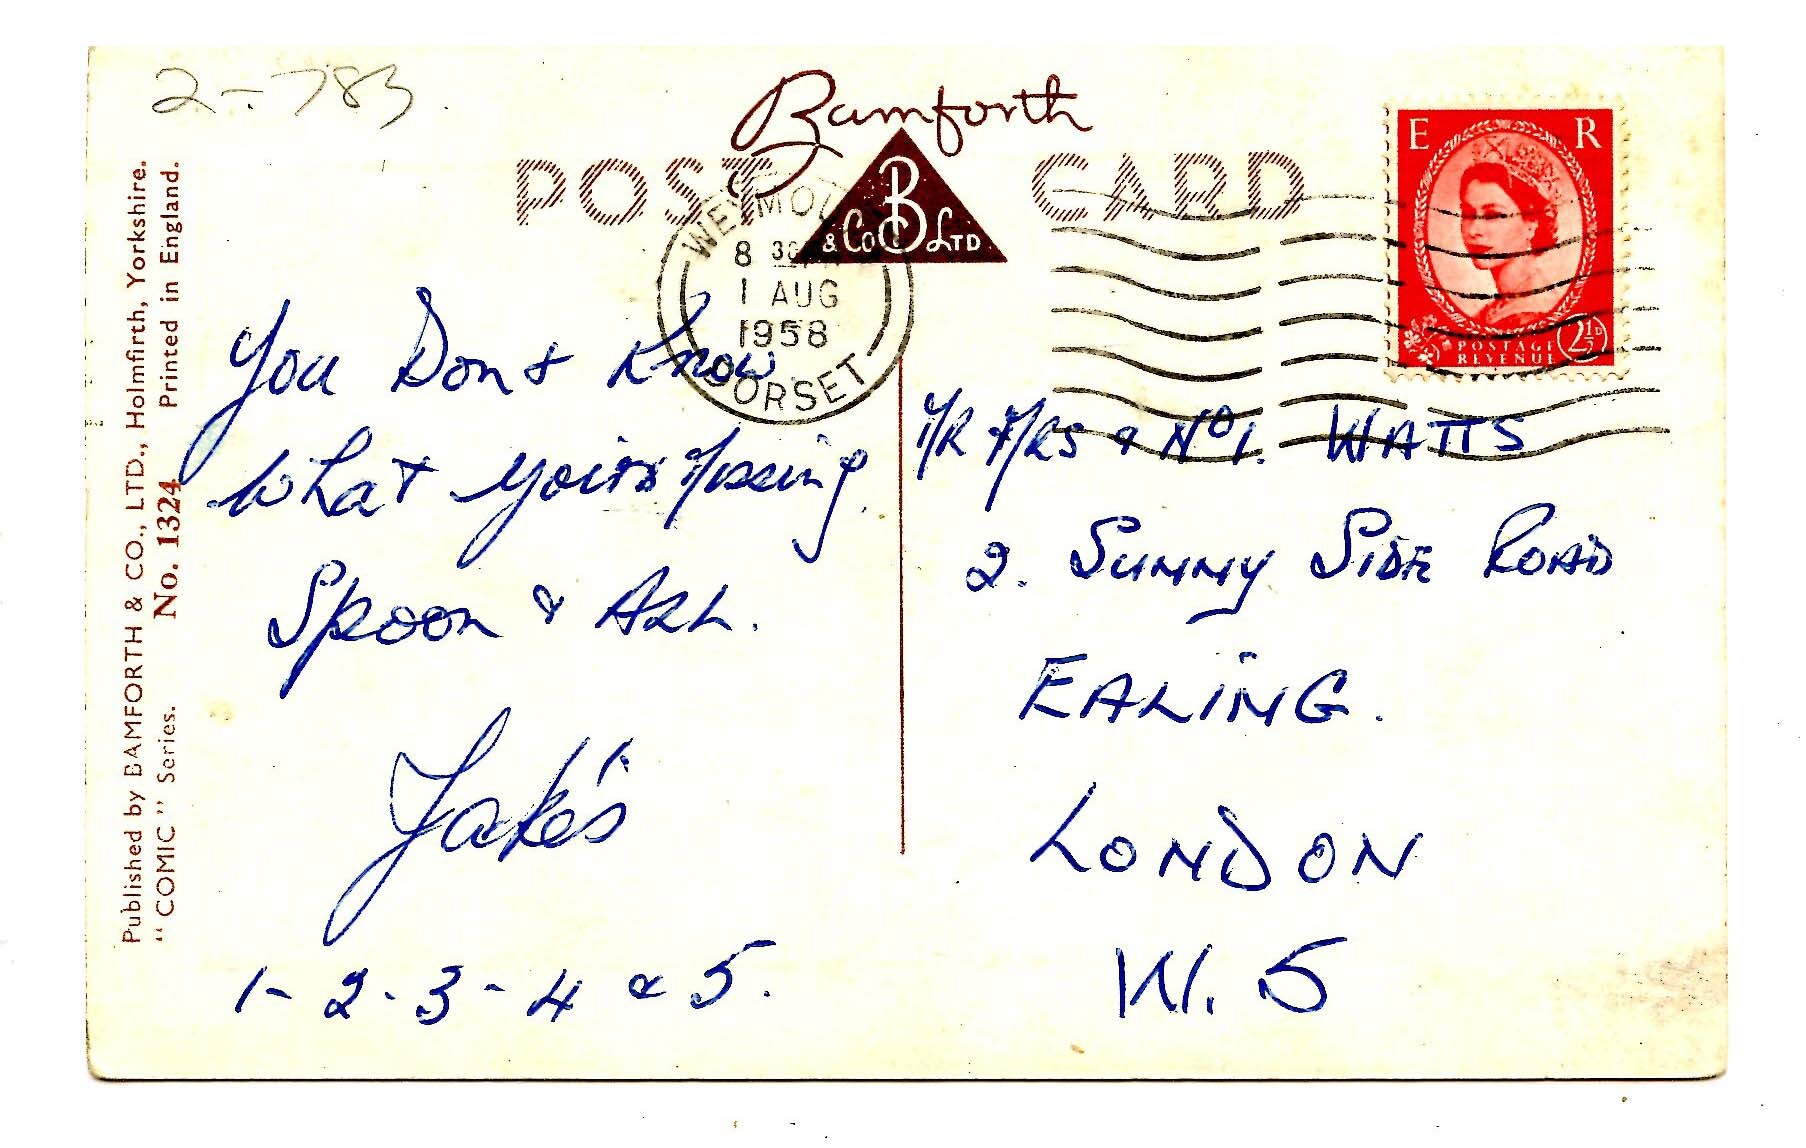 2-.783.
Bamforth
POST CARD
B
& Co LTD
E R
POSTAGE
REVENUE
2½D
WEYMOU
8 30
1 AUG
1958
DORSET
Published by BAMFORTH & CO., LTD., Holmfirth, Yorkshire.
"COMIC" Series. No. 1324 Printed in England.
You Dont Know
What your Missing.
Spoon & ALL.
Jake's
1-2-3-4 & 5.
MR MRS & No 1. WATTS
2. SUNNY SIDE ROAD
EALING.
LONDON
W. 5